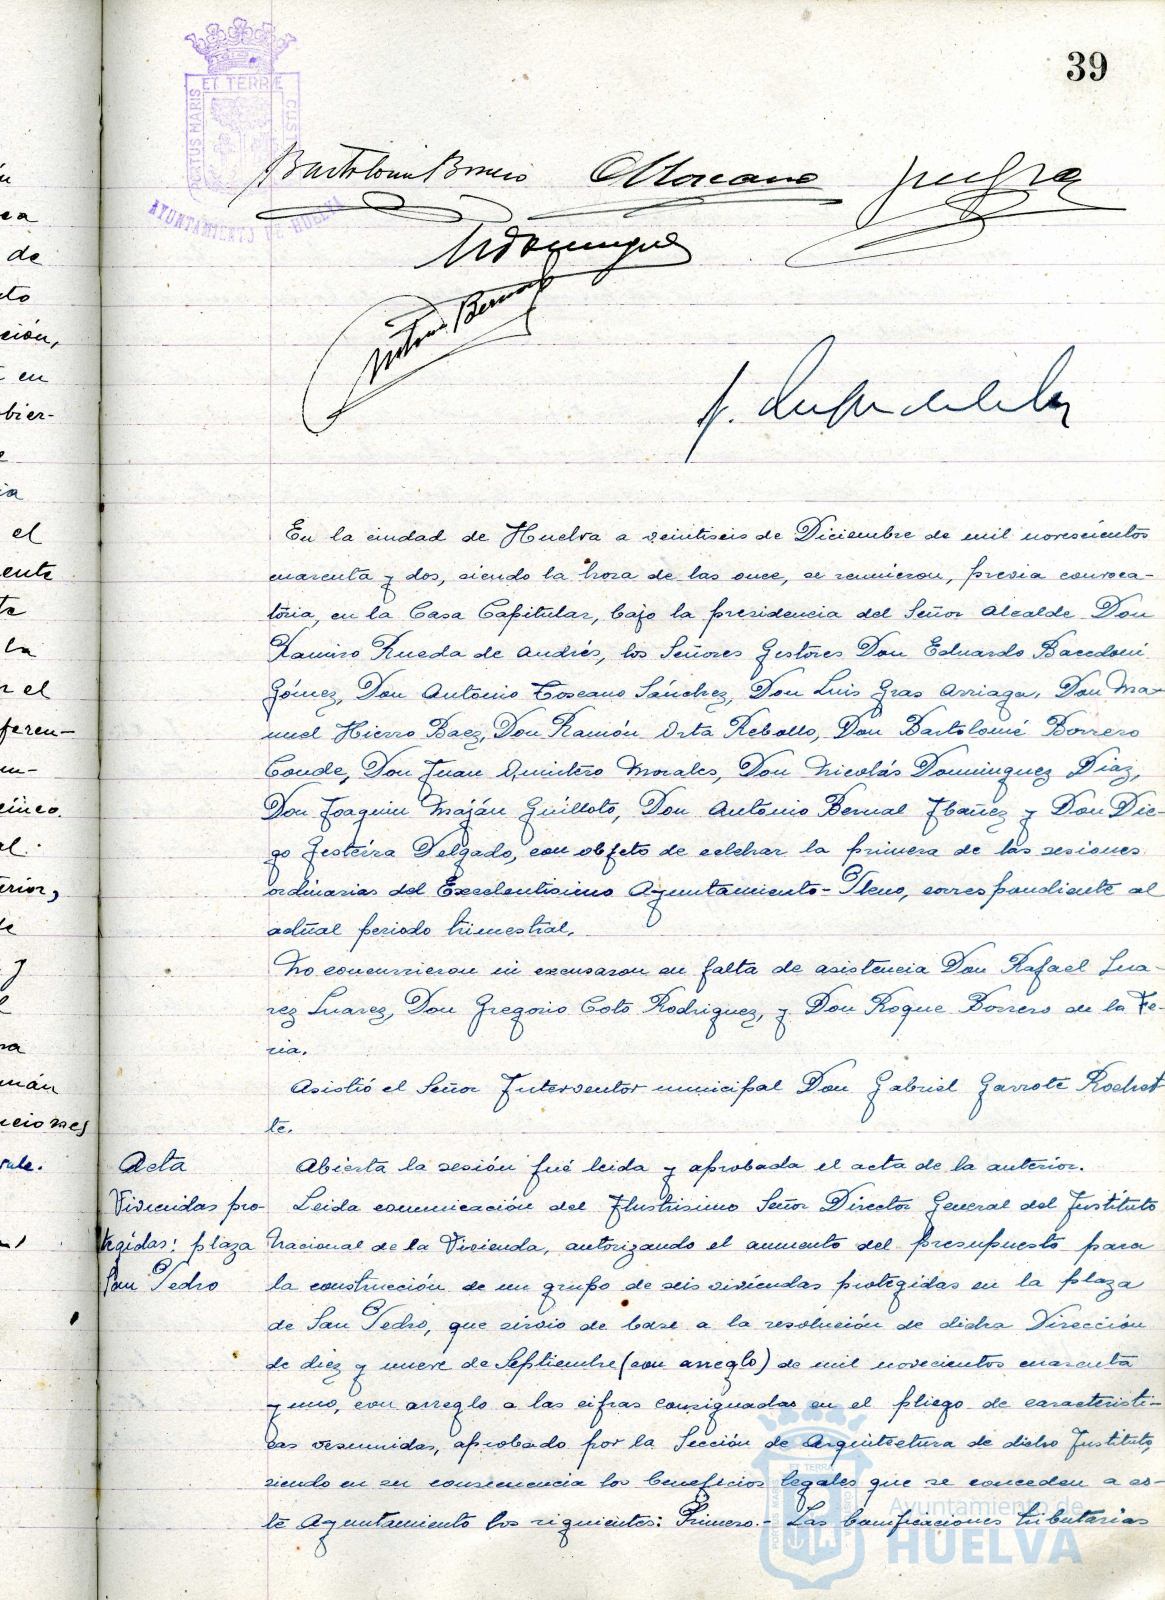 39
PORTUS MARIS ET TERRE CUST
AYUNTAMIENTO DE HUELVA
Bartolomé Borrero
Antonio Bernal
En la ciudad de Huelva a veintiseis de Diciembre de mil novescientos
cuarenta y dos, siendo la hora de las once, se reunieron, previa convoca-
toria, en la Casa Capitular, bajo la presidencia del Señor Alcalde Don
Ramiro Rueda de Andrés, los Señores Gestores Don Eduardo Bacedoni
Gómez, Don Antonio Toscano Sánchez, Don Luis Gras Arriaga, Don Ma-
nuel Hierro Baez, Don Ramón Orta Rebollo, Don Bartolomé Borrero
Conde, Don Juan Quintero Morales, Don Nicolás Dominguez Diaz,
Don Joaquin Maján Guilloto, Don Antonio Bernal Ibañez y Don Die-
go Gesteira Delgado, con objeto de celebrar la primera de las sesiones
ordinarias del Excelentisimo Ayuntamiento-Pleno, correspondiente al
actual periodo trimestral.
No concurrieron ni excusaron su falta de asistencia Don Rafael Sua-
rez Suarez, Don Gregorio Coto Rodriguez, y Don Roque Borrero de la Fe-
ria.
Asistió el Señor Interventor municipal Don Gabriel Garrote Rochet
te.
Acta
Abierta la sesión fué leida y aprobada el acta de la anterior.
Viviendas pro-
tegidas: plaza
San Pedro
Leida comunicación del Ilustrisimo Señor Director General del Instituto
Nacional de la Vivienda, autorizando el aumento del presupuesto para
la construcción de un grupo de seis viviendas protegidas en la plaza
de San Pedro, que sirvio de base a la resolución de dicha Dirección
de diez y nueve de Septiembre (con arreglo) de mil novecientos cuarenta
y uno, con arreglo a las cifras consignadas en el pliego de caracteristi-
cas resumidas, aprobado por la Sección de Arquitectura de dicho Instituto,
siendo en su consecuencia los beneficios legales que se conceden a es-
te Ayuntamiento los siguientes: Primero.- Las bonificaciones tributarias
Ayuntamiento de
HUELVA